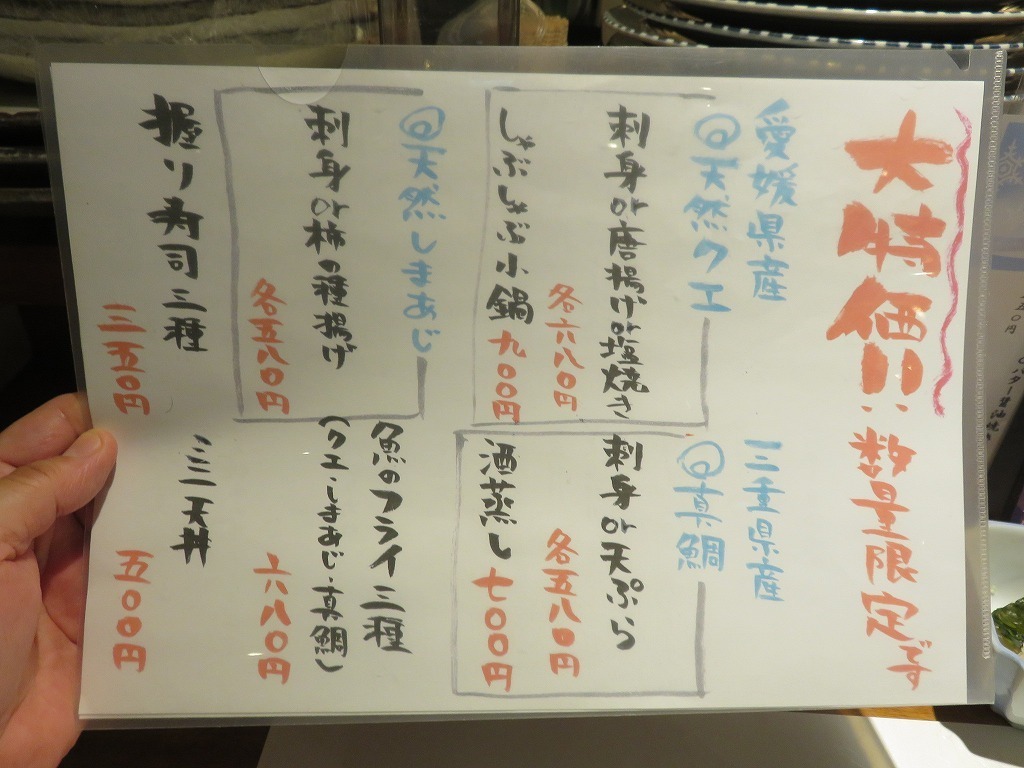 大特価!! 数量限定です
愛媛県産
◎天然クエ
刺身or唐揚げor塩焼き
各六八〇円
しゃぶしゃぶ小鍋 九〇〇円
◎天然しまあじ
刺身or柿の種揚げ
各五八〇円
握り寿司三種
三五〇円
三重県産
◎真鯛
刺身or天ぷら
各五八〇円
酒蒸し 七〇〇円
魚のフライ三種
(クエ・しまあじ・真鯛)
六八〇円
ミニ天丼
五〇〇円